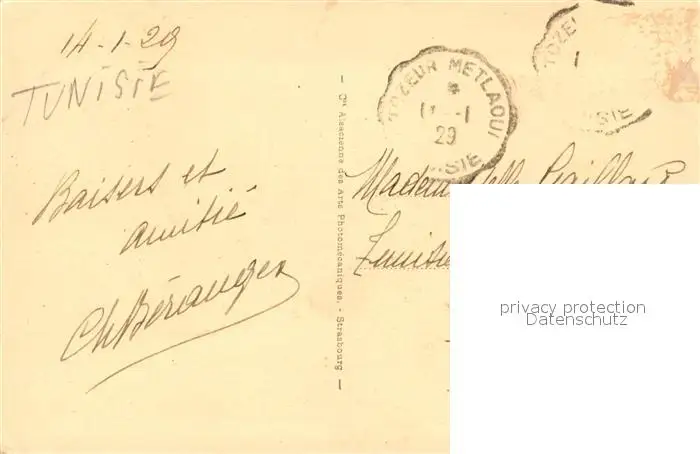 14-1-29
TUNISIE
Baisers et
amitié
Ch Béranger
Cie Alsacienne des Arts Photomécaniques, - Strasbourg
TOZEUR METLAOUI
29
TOZE
privacy protection
Datenschutz